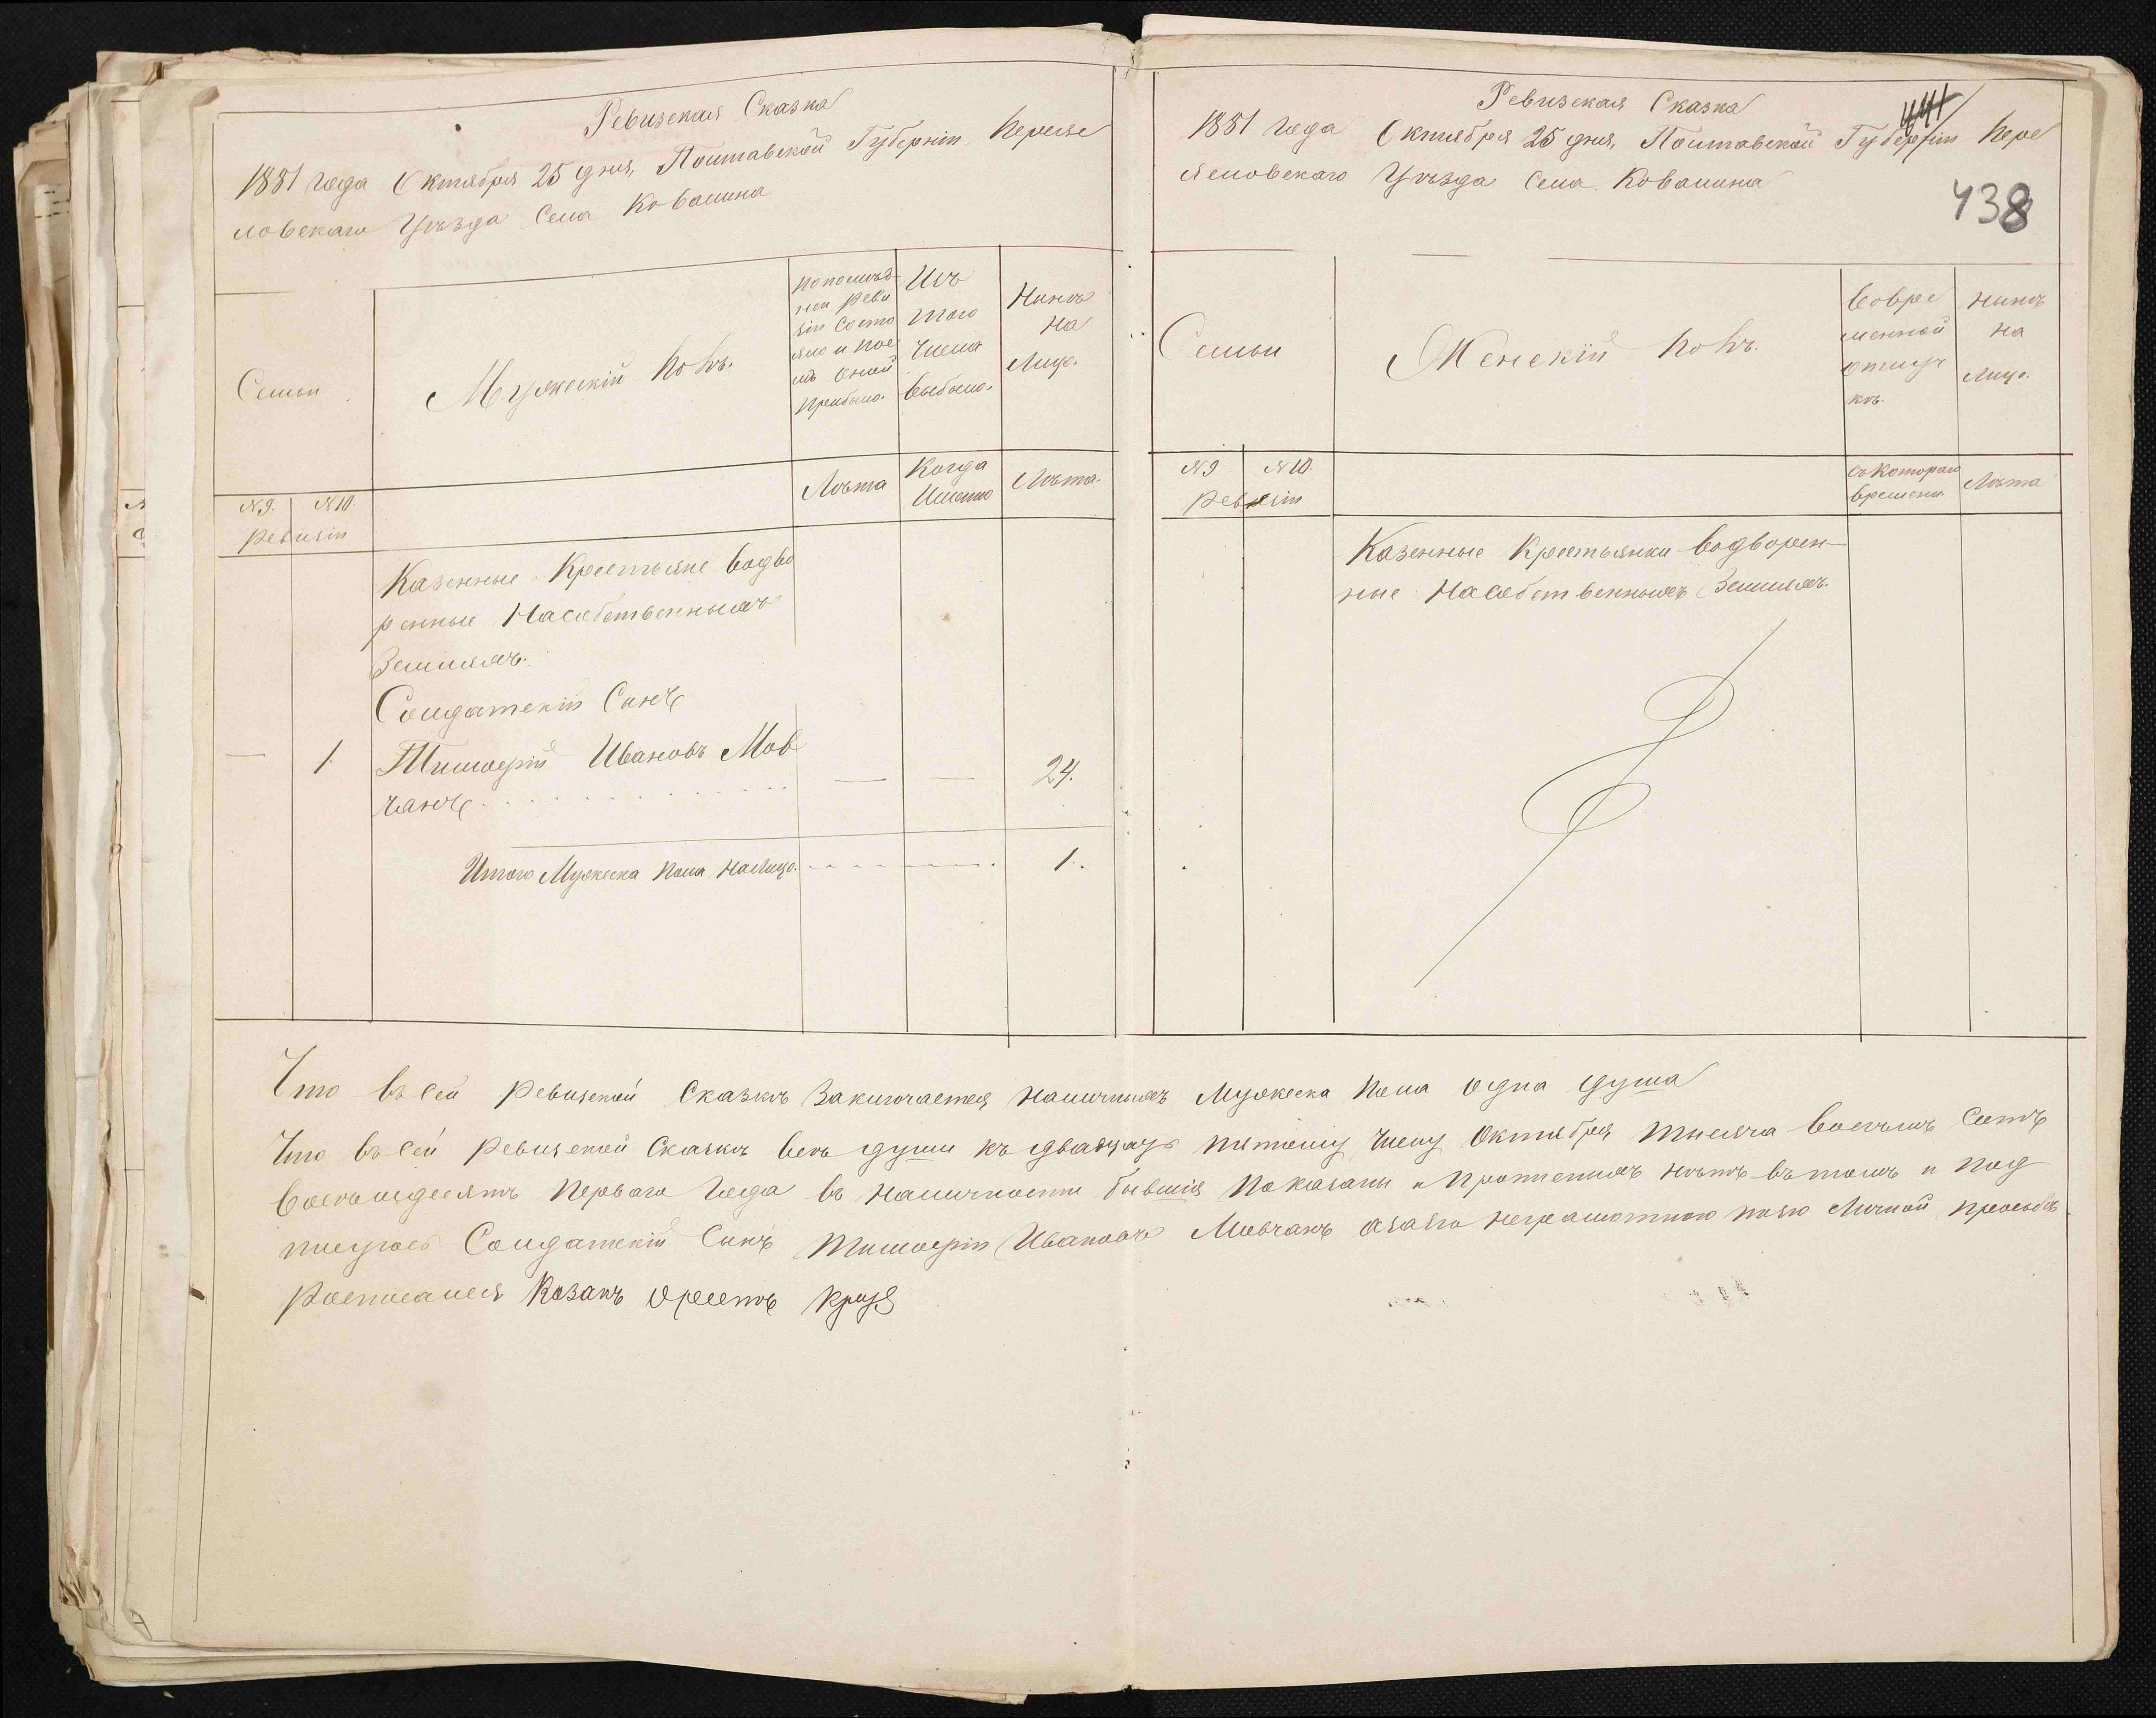 Ревизская Сказка
1881 года Октября 25 дня, Полтавской Губерніи Переяс
ловскаго Уѣзда Села Ковалина
Семьи
Мужескій полъ.
по послѣд-
ней реви
зіи состо
яло и пос
лѣ оной
прибыло.
Изъ
того
числа
выбыло.
Нынѣ
на
Лицо.
№ 9. № 10.
ревизіи
Лѣта
Когда
Именно
Лѣта.
Казенные Крестьяне водво
ренные на собственныхъ
Земляхъ.
Солдатскій Сынъ
— 1. Тимофей Ивановъ Мов
чанъ — — 24.
Итого Мужеска пола на лицо. 1.
Ревизская Сказка
441
1881 года Октября 25 дня, Полтавской Губерніи Пере
ясловскаго Уѣзда Села Ковалина
438
Семьи
Женскій полъ.
во вре
менной
отлуч
кѣ.
нынѣ
на
лицо.
№ 9 № 10
ревизіи
съ котораго
времени
Лѣта
Казенные Крестьянки водворен-
ные на собственныхъ Земляхъ.
Что въ сей ревизской Сказкѣ Заключается наличныхъ Мужеска пола одна душа
Что въ сей ревизской Сказкѣ всѣ души къ двадцать пятому числу Октября тысяча восемь сотъ
восемьдесятъ перваго года въ наличности бывшія показаны и прописныхъ нѣтъ въ томъ и под
писуюсь Солдатскій Сынъ Тимофей Ивановъ Мовчанъ а за его неграмотного по его личной просьбѣ
росписался Козакъ Орестъ